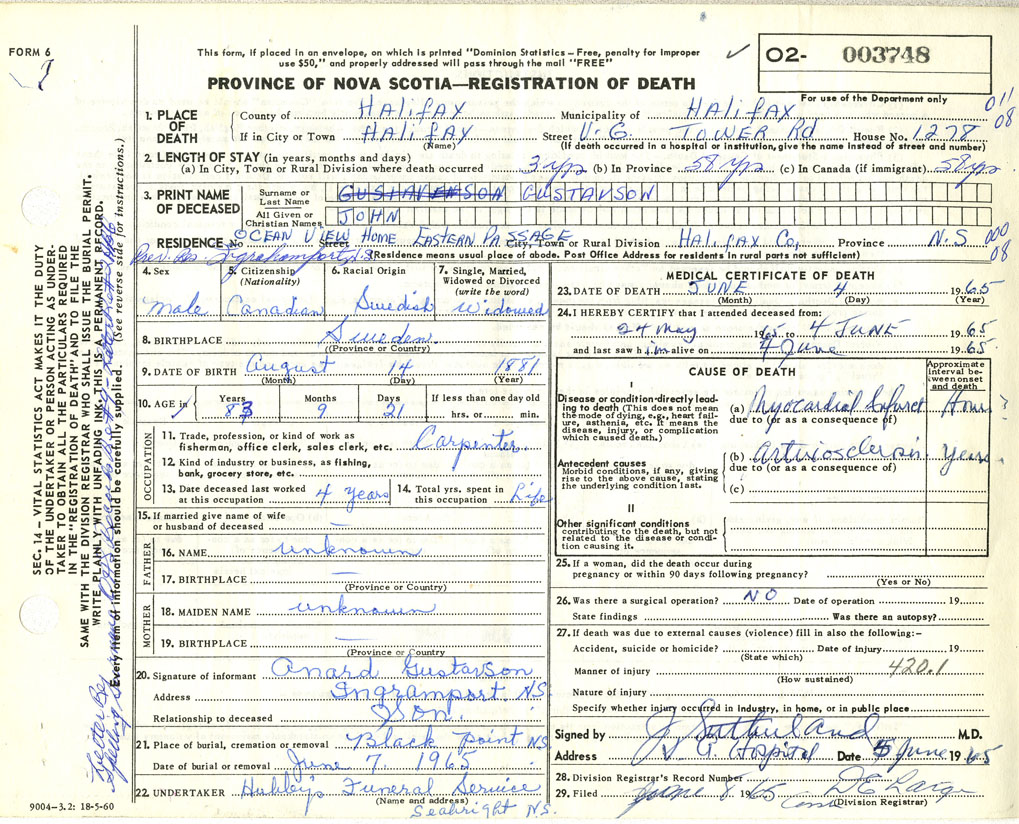 FORM 6
This form, if placed in an envelope, on which is printed "Dominion Statistics – Free, penalty for improper
use $50," and properly addressed will pass through the mail "FREE"
02- 003748
For use of the Department only
011
08
PROVINCE OF NOVA SCOTIA—REGISTRATION OF DEATH
1. PLACE OF DEATH
County of Halifax Municipality of Halifax
If in City or Town Halifax Street V.G. TOWER Rd House No. 1278
(Name) (If death occurred in a hospital or institution, give the name instead of street and number)
2. LENGTH OF STAY (in years, months and days)
(a) In City, Town or Rural Division where death occurred 3 yrs (b) In Province 58 yrs (c) In Canada (if immigrant) 58 yrs
3. PRINT NAME OF DECEASED
Surname or Last Name GUSTAVENSON GUSTAVSON
All Given or Christian Names JOHN
RESIDENCE No OCEAN VIEW HOME Street EASTERN PASSAGE City, Town or Rural Division Halifax Co, Province N.S 000
08
(Residence means usual place of abode. Post Office Address for residents in rural parts not sufficient)
4. Sex
male
5. Citizenship
(Nationality)
Canadian
6. Racial Origin
Swedish
7. Single, Married,
Widowed or Divorced
(write the word)
Widowed
8. BIRTHPLACE Sweden
(Province or Country)
9. DATE OF BIRTH August 14 1881
(Month) (Day) (Year)
10. AGE in Years 83 Months 9 Days 21 If less than one day old
hrs. or min.
OCCUPATION
11. Trade, profession, or kind of work as
fisherman, office clerk, sales clerk, etc. Carpenter
12. Kind of industry or business, as fishing,
bank, grocery store, etc.
13. Date deceased last worked
at this occupation 4 years
14. Total yrs. spent in
this occupation Life
15. If married give name of wife
or husband of deceased —
FATHER
16. NAME unknown
17. BIRTHPLACE —
(Province or Country)
MOTHER
18. MAIDEN NAME unknown
19. BIRTHPLACE —
(Province or Country
20. Signature of informant Anard Gustavson
Address Ingramport NS
Relationship to deceased Son.
21. Place of burial, cremation or removal Black Point NS
Date of burial or removal June 7, 1965
22. UNDERTAKER Hubley's Funeral Service
(Name and address)
Seabright N.S.
MEDICAL CERTIFICATE OF DEATH
23. DATE OF DEATH JUNE 4 1965
(Month) (Day) (Year)
24. I HEREBY CERTIFY that I attended deceased from:
24 May 1965 to 4 JUNE 1965
and last saw him alive on 4 June 1965
CAUSE OF DEATH
Approximate interval between onset and death
I
Disease or condition directly leading to death (This does not
mean the mode of dying, e.g., heart failure, asthenia, etc. It means the
disease, injury, or complication which caused death.)
(a) Myocardial Infarct Hours
due to (or as a consequence of)
Antecedent causes
Morbid conditions, if any, giving
rise to the above cause, stating
the underlying condition last.
(b) Arteriosclerosis Years
due to (or as a consequence of)
(c)
II
Other significant conditions
contributing to the death, but not
related to the disease or condition causing it.
25. If a woman, did the death occur during
pregnancy or within 90 days following pregnancy?
(Yes or No)
26. Was there a surgical operation? NO Date of operation 19
State findings Was there an autopsy?
27. If death was due to external causes (violence) fill in also the following:–
Accident, suicide or homicide? Date of injury 19
(State which)
Manner of injury 420.1
(How sustained)
Nature of injury
Specify whether injury occurred in industry, in home, or in public place
Signed by J Sutherland M.D.
Address V G Hospital Date 5 June 1965
28. Division Registrar's Record Number
29. Filed June 8 1965
(Division Registrar)
SEC. 14 – VITAL STATISTICS ACT MAKES IT THE DUTY
OF THE UNDERTAKER OR PERSON ACTING AS UNDERTAKER TO OBTAIN ALL THE PARTICULARS REQUIRED
IN THE "REGISTRATION OF DEATH" AND TO FILE THE
SAME WITH THE DIVISION REGISTRAR WHO SHALL ISSUE THE BURIAL PERMIT.
WRITE PLAINLY WITH UNFADING INK, THIS IS A PERMANENT RECORD.
Every item of information should be carefully supplied. (See reverse side for instructions.)
9004-3.2: 18-5-60